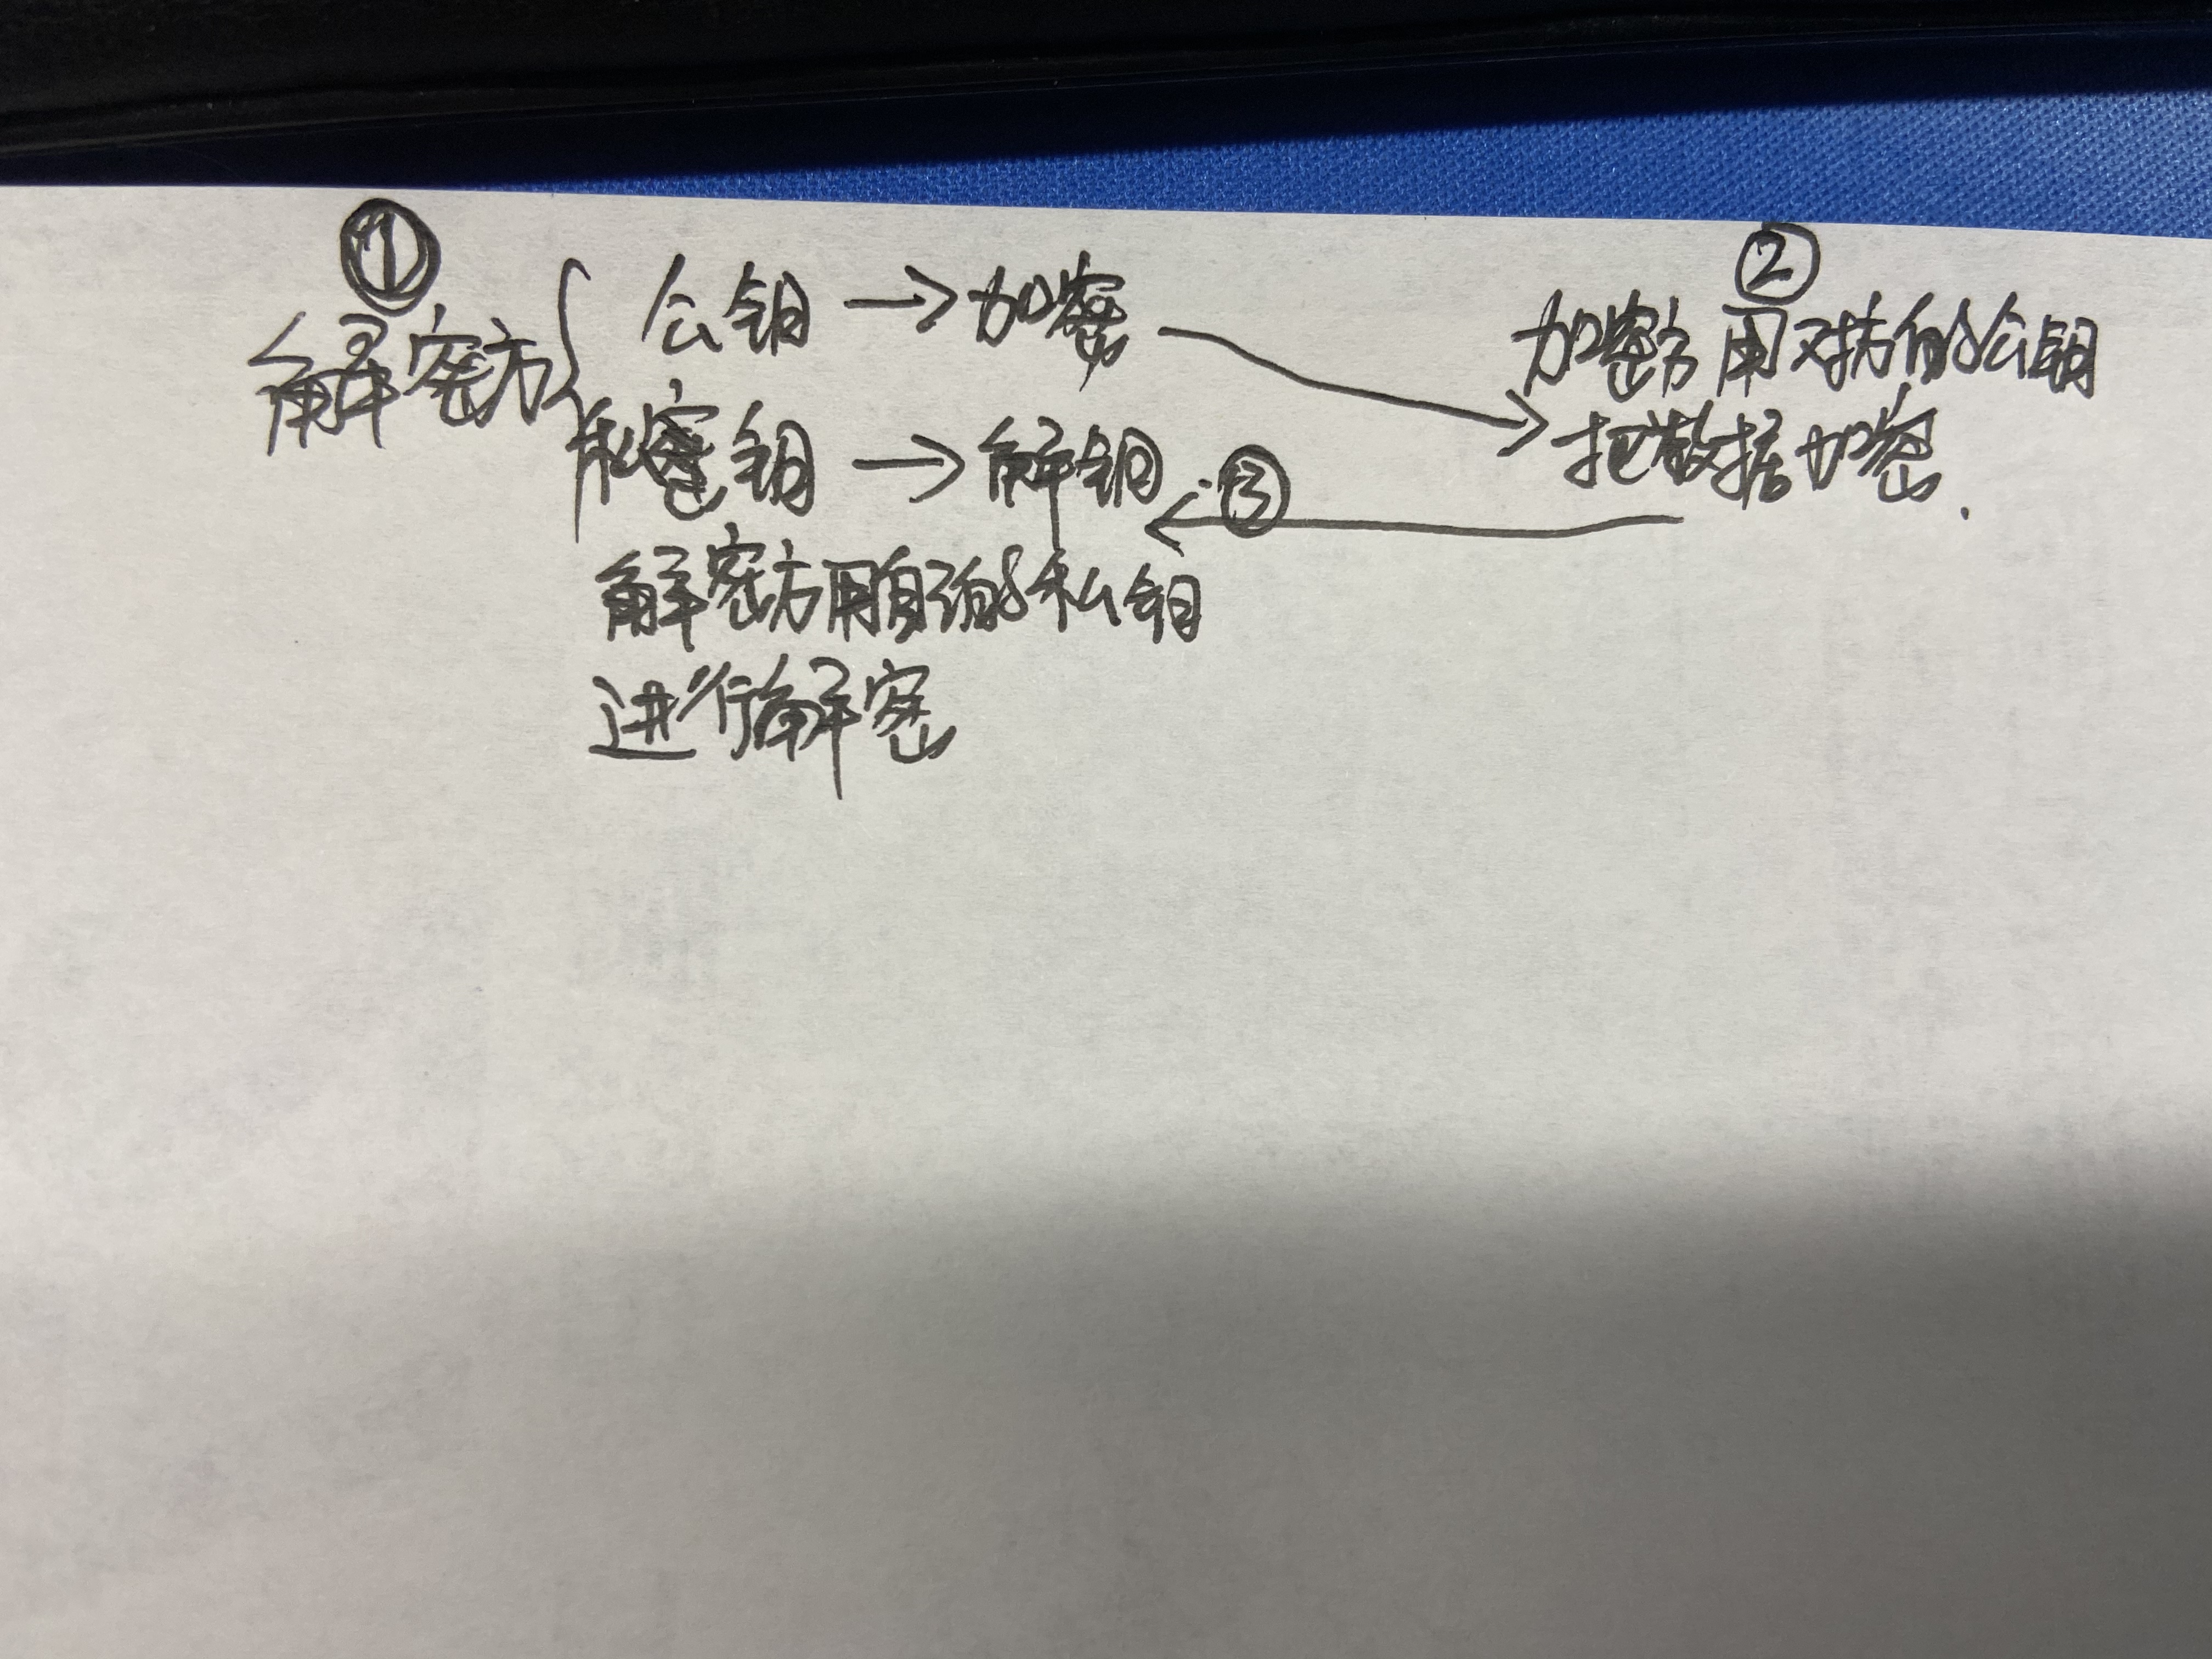 ①
解密方
公钥 → 加密
私密钥 → 解钥
②
加密方用对方的公钥
把数据加密.
③
解密方用自己的私钥
进行解密